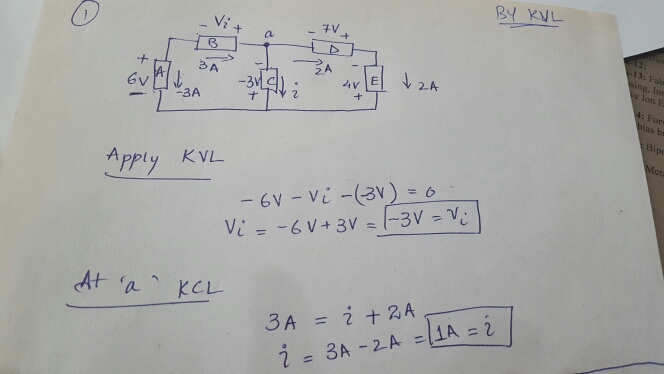 ① BY KVL
- Vi + a - 7V +
B D
3A 2A
+ 6V A -3A - -3V C + i - 4V E + 2A
Apply KVL
- 6V - Vi - (-3V) = 0
Vi = -6V + 3V = -3V = Vi
At 'a' KCL
3A = i + 2A
i = 3A - 2A = 1A = i
-12:
-13: Fab
sing, Ion
ve Ion
4: For
bias
: Bip
Met